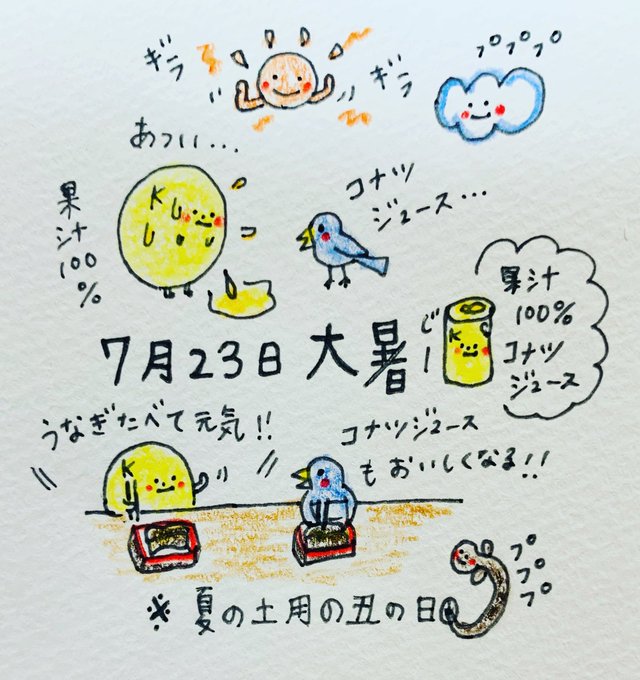 ギラ
ギラ
プププ
あつい…
コナツ
ジュース…
果汁
100
%
K
果汁
100%
コナツ
ジュース
じー
K
7月23日 大暑
うなぎたべて元気!!
コナツジュース
もおいしくなる!!
K
ププ
プ
※夏の土用の丑の日